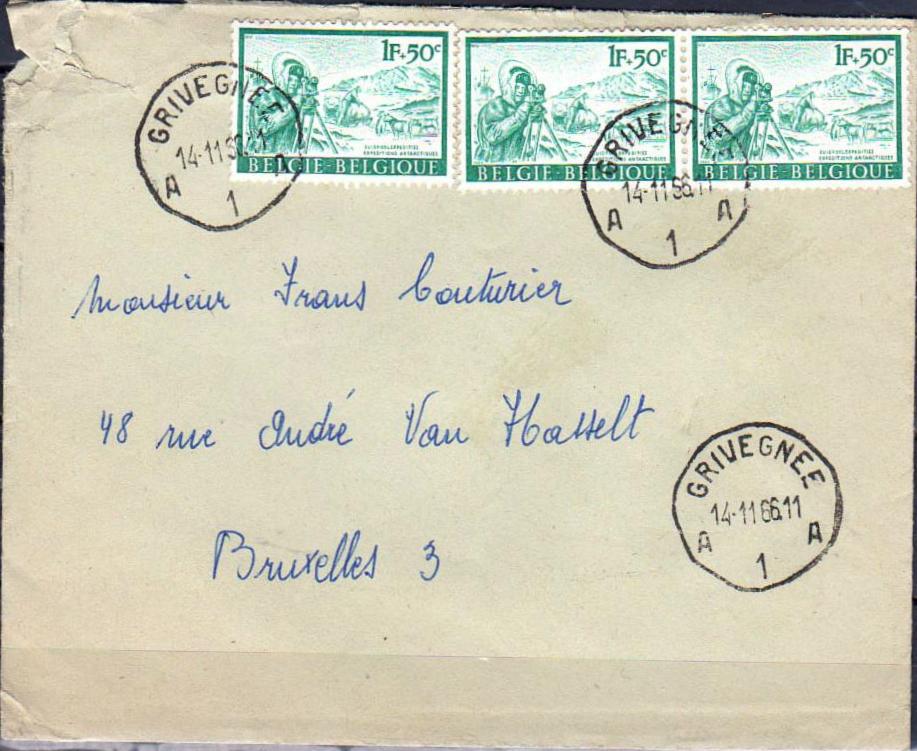 1F+50c
ZUIDPOOLEXPEDITIES
EXPEDITIONS ANTARCTIQUES
BELGIE-BELGIQUE
1F+50c
ZUIDPOOLEXPEDITIES
EXPEDITIONS ANTARCTIQUES
BELGIE-BELGIQUE
1F+50c
ZUIDPOOLEXPEDITIES
EXPEDITIONS ANTARCTIQUES
BELGIE-BELGIQUE
GRIVEGNEE
14-11 66.11
A A
1
GRIVEGNEE
14-11 66.11
A A
1
Monsieur Frans Couturier
48 rue André Van Hasselt
Bruxelles 3
GRIVEGNEE
14-11 66.11
A A
1